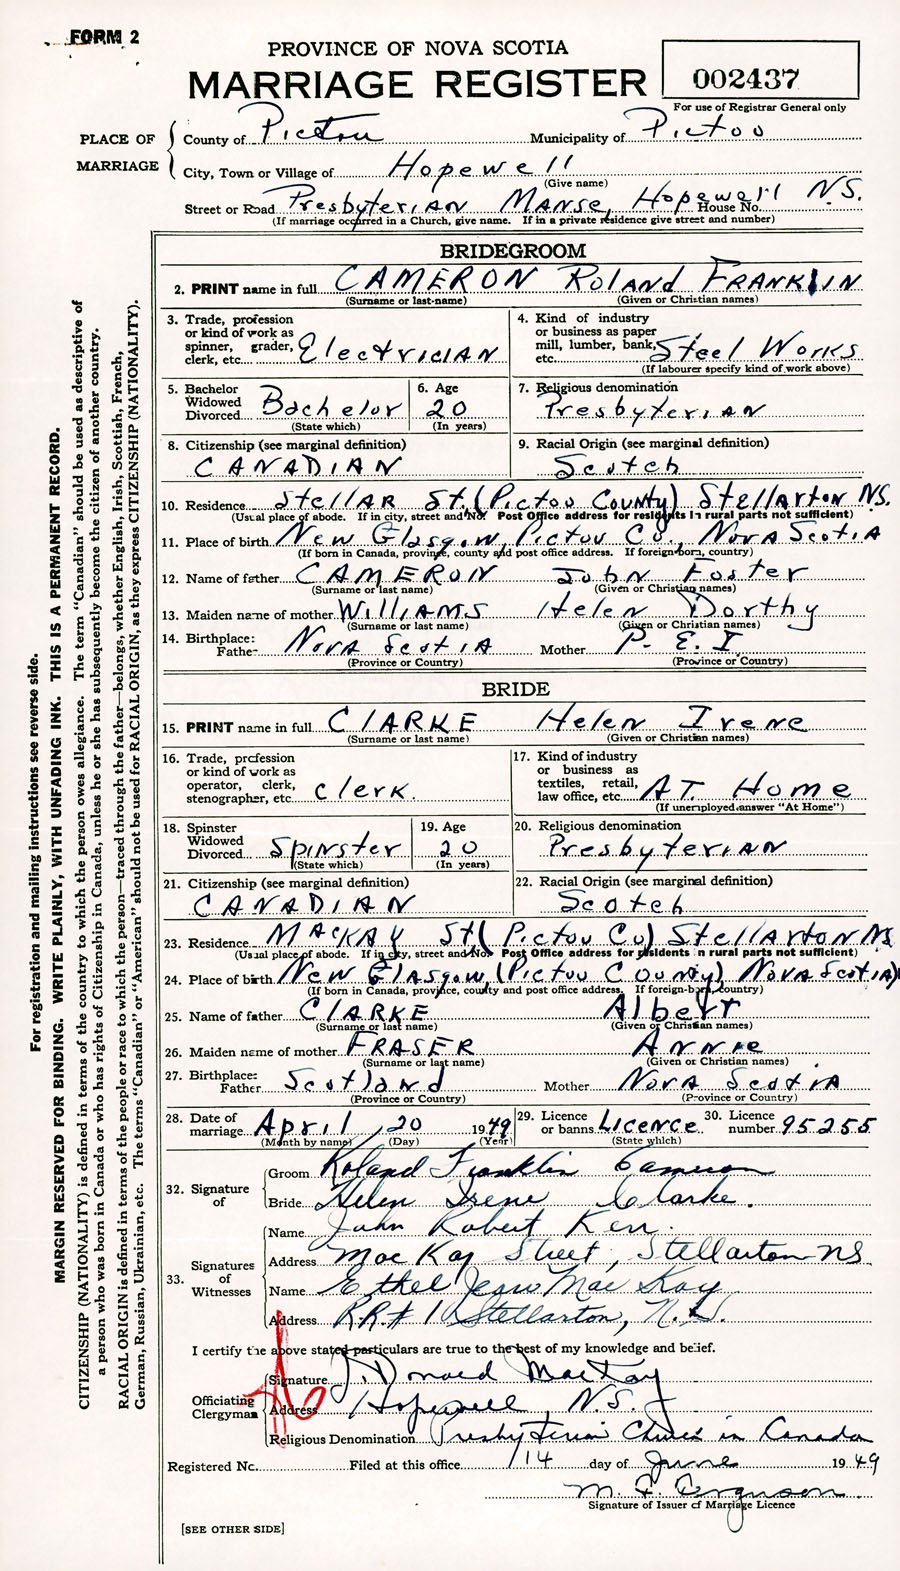 FORM 2
PROVINCE OF NOVA SCOTIA
MARRIAGE REGISTER
002437
For use of Registrar General only
PLACE OF MARRIAGE
County of Pictou Municipality of Pictou
City, Town or Village of Hopewell
(Give name)
Street or Road Presbyterian Manse, Hopewell N.S. House No.
(If marriage occurred in a Church, give name. If in a private residence give street and number)
BRIDEGROOM
2. PRINT name in full CAMERON Roland FRANKLIN
(Surname or last name) (Given or Christian names)
3. Trade, profession or kind of work as spinner, grader, clerk, etc. Electrician
4. Kind of industry or business as paper mill, lumber, bank, etc. Steel Works
(If labourer specify kind of work above)
5. Bachelor Widowed Divorced Bachelor
(State which)
6. Age 20
(In years)
7. Religious denomination Presbyterian
8. Citizenship (see marginal definition) CANADIAN
9. Racial Origin (see marginal definition) Scotch
10. Residence Stellar St. (Pictou County) Stellarton N.S.
(Usual place of abode. If in city, street and No. Post Office address for residents in rural parts not sufficient)
11. Place of birth New Glasgow, Pictou Co, Nova Scotia
(If born in Canada, province, county and post office address. If foreign-born, country)
12. Name of father CAMERON John Foster
(Surname or last name) (Given or Christian names)
13. Maiden name of mother Williams Helen Dorthy
(Surname or last name) (Given or Christian names)
14. Birthplace: Father Nova Scotia Mother P.E.I.
(Province or Country) (Province or Country)
BRIDE
15. PRINT name in full ClARKE Helen Irene
(Surname or last name) (Given or Christian names)
16. Trade, profession or kind of work as operator, clerk, stenographer, etc. clerk.
17. Kind of industry or business as textiles, retail, law office, etc. AT Home
(If unemployed answer "At Home")
18. Spinster Widowed Divorced Spinster
(State which)
19. Age 20
(In years)
20. Religious denomination Presbyterian
21. Citizenship (see marginal definition) CANADIAN
22. Racial Origin (see marginal definition) Scotch
23. Residence MacKay St. (Pictou Co) Stellarton NS
(Usual place of abode. If in city, street and No. Post Office address for residents in rural parts not sufficient)
24. Place of birth New Glasgow, (Pictou County) Nova Scotia)
(If born in Canada, province, county and post office address. If foreign-born, country)
25. Name of father ClARKE Albert
(Surname or last name) (Given or Christian names)
26. Maiden name of mother FRASER Annie
(Surname or last name) (Given or Christian names)
27. Birthplace: Father Scotland Mother Nova Scotia
(Province or Country) (Province or Country)
28. Date of marriage April 20 1949
(Month by name) (Day) (Year)
29. Licence or banns Licence
(State which)
30. Licence number 95255
32. Signature of
Groom Roland Franklin Cameron
Bride Helen Irene Clarke.
33. Signatures of Witnesses
Name John Robert Kerr.
Address MacKay Street, Stellarton NS
Name Ethel Jean MacKay
Address RR# 1 Stellarton, N.S.
I certify the above stated particulars are true to the best of my knowledge and belief.
Officiating Clergyman
Signature J. Donald MacKay
Address Hopewell, N.S.
Religious Denomination Presbyterian Church in Canada
Registered No. Filed at this office 14 day of June 1949
Signature of Issuer of Marriage Licence
[SEE OTHER SIDE]
For registration and mailing instructions see reverse side.
MARGIN RESERVED FOR BINDING. WRITE PLAINLY, WITH UNFADING INK. THIS IS A PERMANENT RECORD.
CITIZENSHIP (NATIONALITY) is defined in terms of the country to which the person owes allegiance. The term "Canadian" should be used as descriptive of
a person who was born in Canada or who has rights of Citizenship in Canada, unless he or she has subsequently become the citizen of another country.
RACIAL ORIGIN is defined in terms of the people or race to which the person—traced through the father—belongs, whether English, Irish, Scottish, French,
German, Russian, Ukrainian, etc. The terms "Canadian" or "American" should not be used for RACIAL ORIGIN, as they express CITIZENSHIP (NATIONALITY).